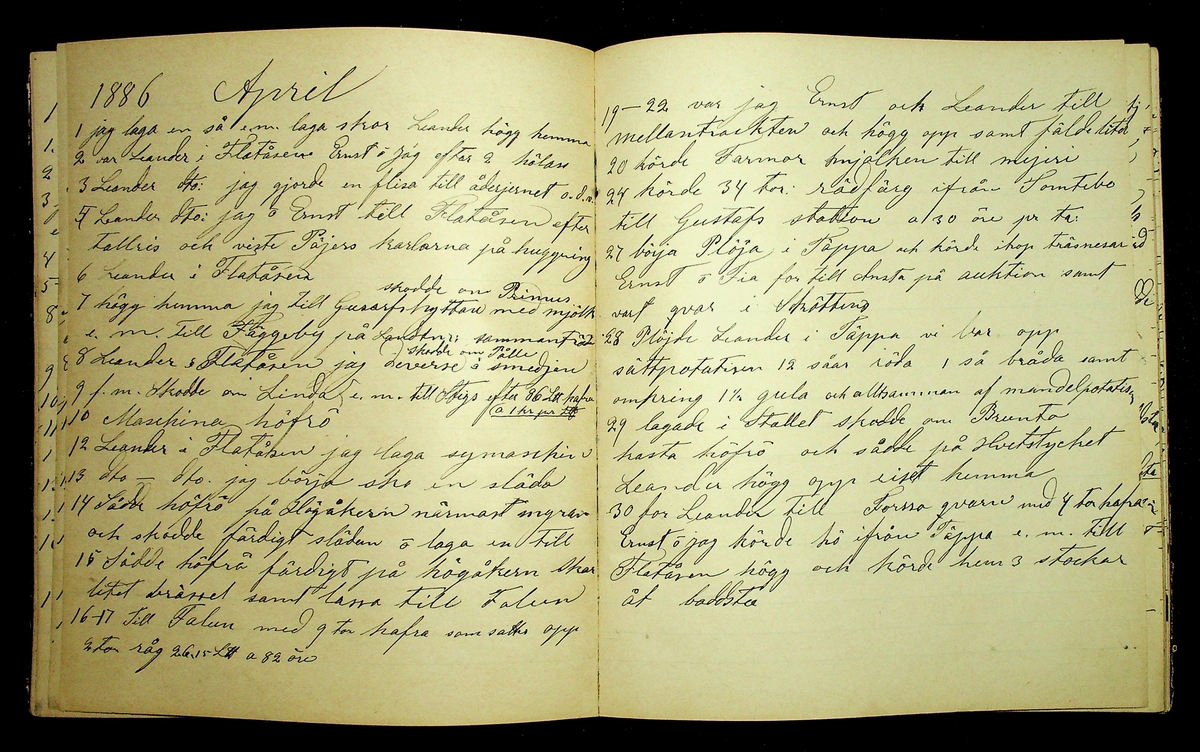 1886 April
1 jag laga en så e.m. laga skor Leander högg hemma
2 var Leander i Flatåsen Ernst ö jag efter 2 hölass
3 Leander dto: jag gjorde en flisa till åderjernet o.d.
4 Leander dto: jag ö Ernst till Flatåsen efter
tallris och viste Påjers karlarna på huggning
6 Leander i Flatåsen
skodde om Primus
7 högg hemma jag till Gusarfshyttan med mjölk
e. m. till Fäggeby på Landtm: sammanträd
skodde om Pålle
8 Leander i Flatåsen jag deverse i smedjen
9 f.m. skodde om Linda e.m. till Stigs efter 86 Ltt hafra
a 1 kr pr Ltt
10 Maschina höfrö
12 Leander i Flatåsen jag laga symaskin
13 dto — dto. jag börja sko en släda
14 Sådde höfrö på Högåkern närmast myran
och skodde färdigt slädan ö laga en till
15 Sådde höfrö färdigt på högåkern skar
litet brässel samt lassa till Falun
16-17 Till Falun med 9 tor hafra som sattes opp
2 tor råg 26.15 Ltt a 82 öre
19-22 var jag Ernst och Leander till
mellantrackten och högg opp samt fälde litet
20 körde Farmor mjölken till mejeri
24 körde 34 tor: rödfärg ifrån Tomtebo
till Gustafs station a 30 öre pr ta:
27 börja Plöja i Täppa och körde ihop träsnesar
Ernst ö Fia for till Ansta på auktion samt
vart qvar i Skötting
28 Plöjde Leander i Täppa vi bar opp
sättpotatisen 12 såar röda 1 så bråda samt
omkring 1½ gula och alltsamman af mandelpotatis
29 lagade i Stallet skodde om Brunta
kasta höfrö och sådde på Hvetstycket
Leander högg opp riset hemma
30 for Leander till Forssa qvarn med 4 tor hafra
Ernst ö jag körde hö ifrån Täppa e. m. till
Flatåsen högg och körde hem 3 stockar
åt baddstea